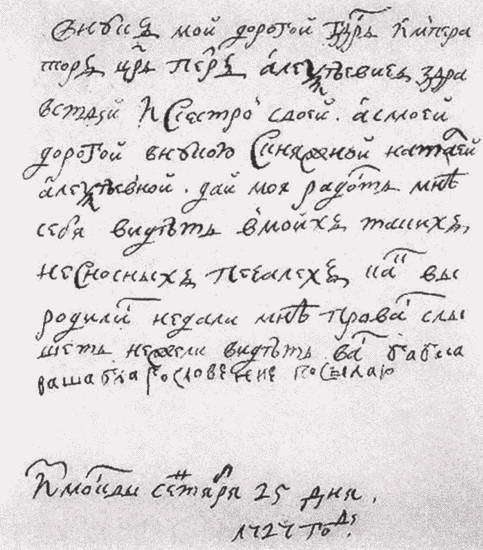 Внукъ мой дорогой гдрь Император
торъ црь петръ алеѯѣевичъ здра
вствей И Сестрой своей. а моей
дорогой внукою Княжной наталей
алеѯѣевной. дай моя радость мнѣ
себя видѣть вмоихъ такихъ
несносныхъ печалехъ, как вы
родились недали мнѣ прова слы
шеть нежели видѣть вас бабка
ваша благословение посылаю
Имосквы сентября 25 дня.
1727 год.